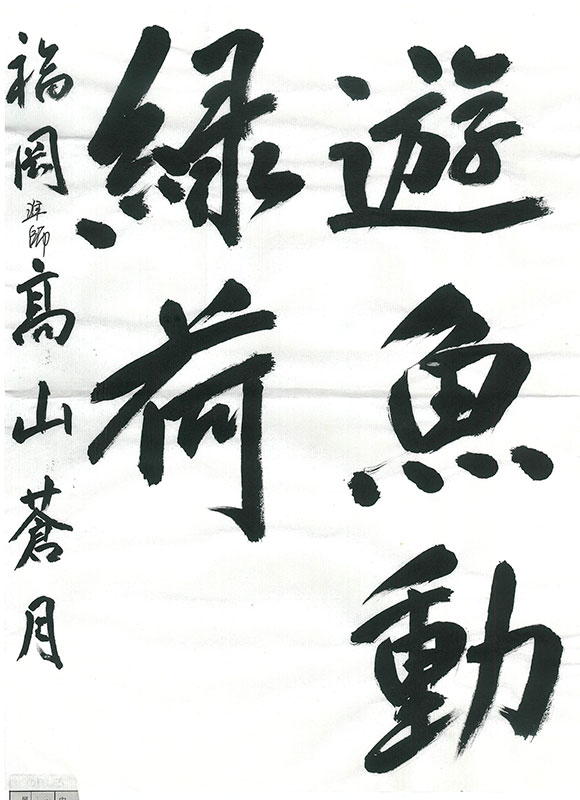 遊魚動
緑荷
福岡 準師 髙山蒼月